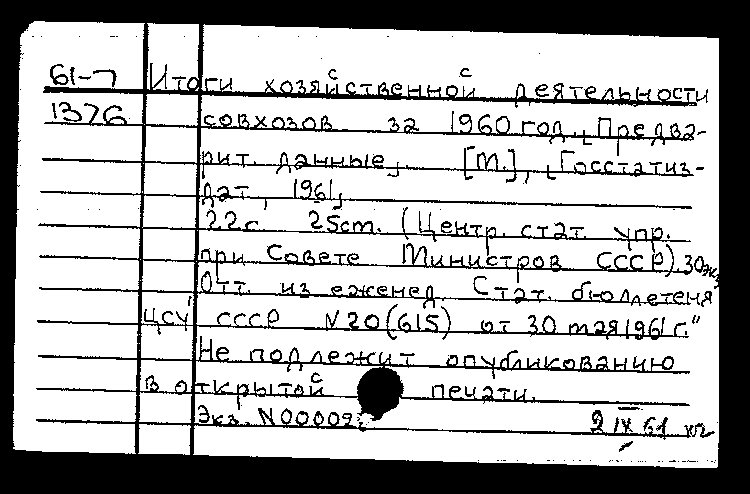 61-7 Итоги хозяйственной деятельности
1376 совхозов за 1960 год. [Предва-
рит. данные]. [М.], [Госстатиз-
дат, 1961]
22с 25см. (Центр. стат. упр.
при Совете Министров СССР) 30экз
Отт. из еженед. Стат. бюллетеня
ЦСУ СССР N20(615) от 30 мая 1961 г."
Не подлежит опубликованию
в открытой печати.
Экз. N00002
2 IX 61